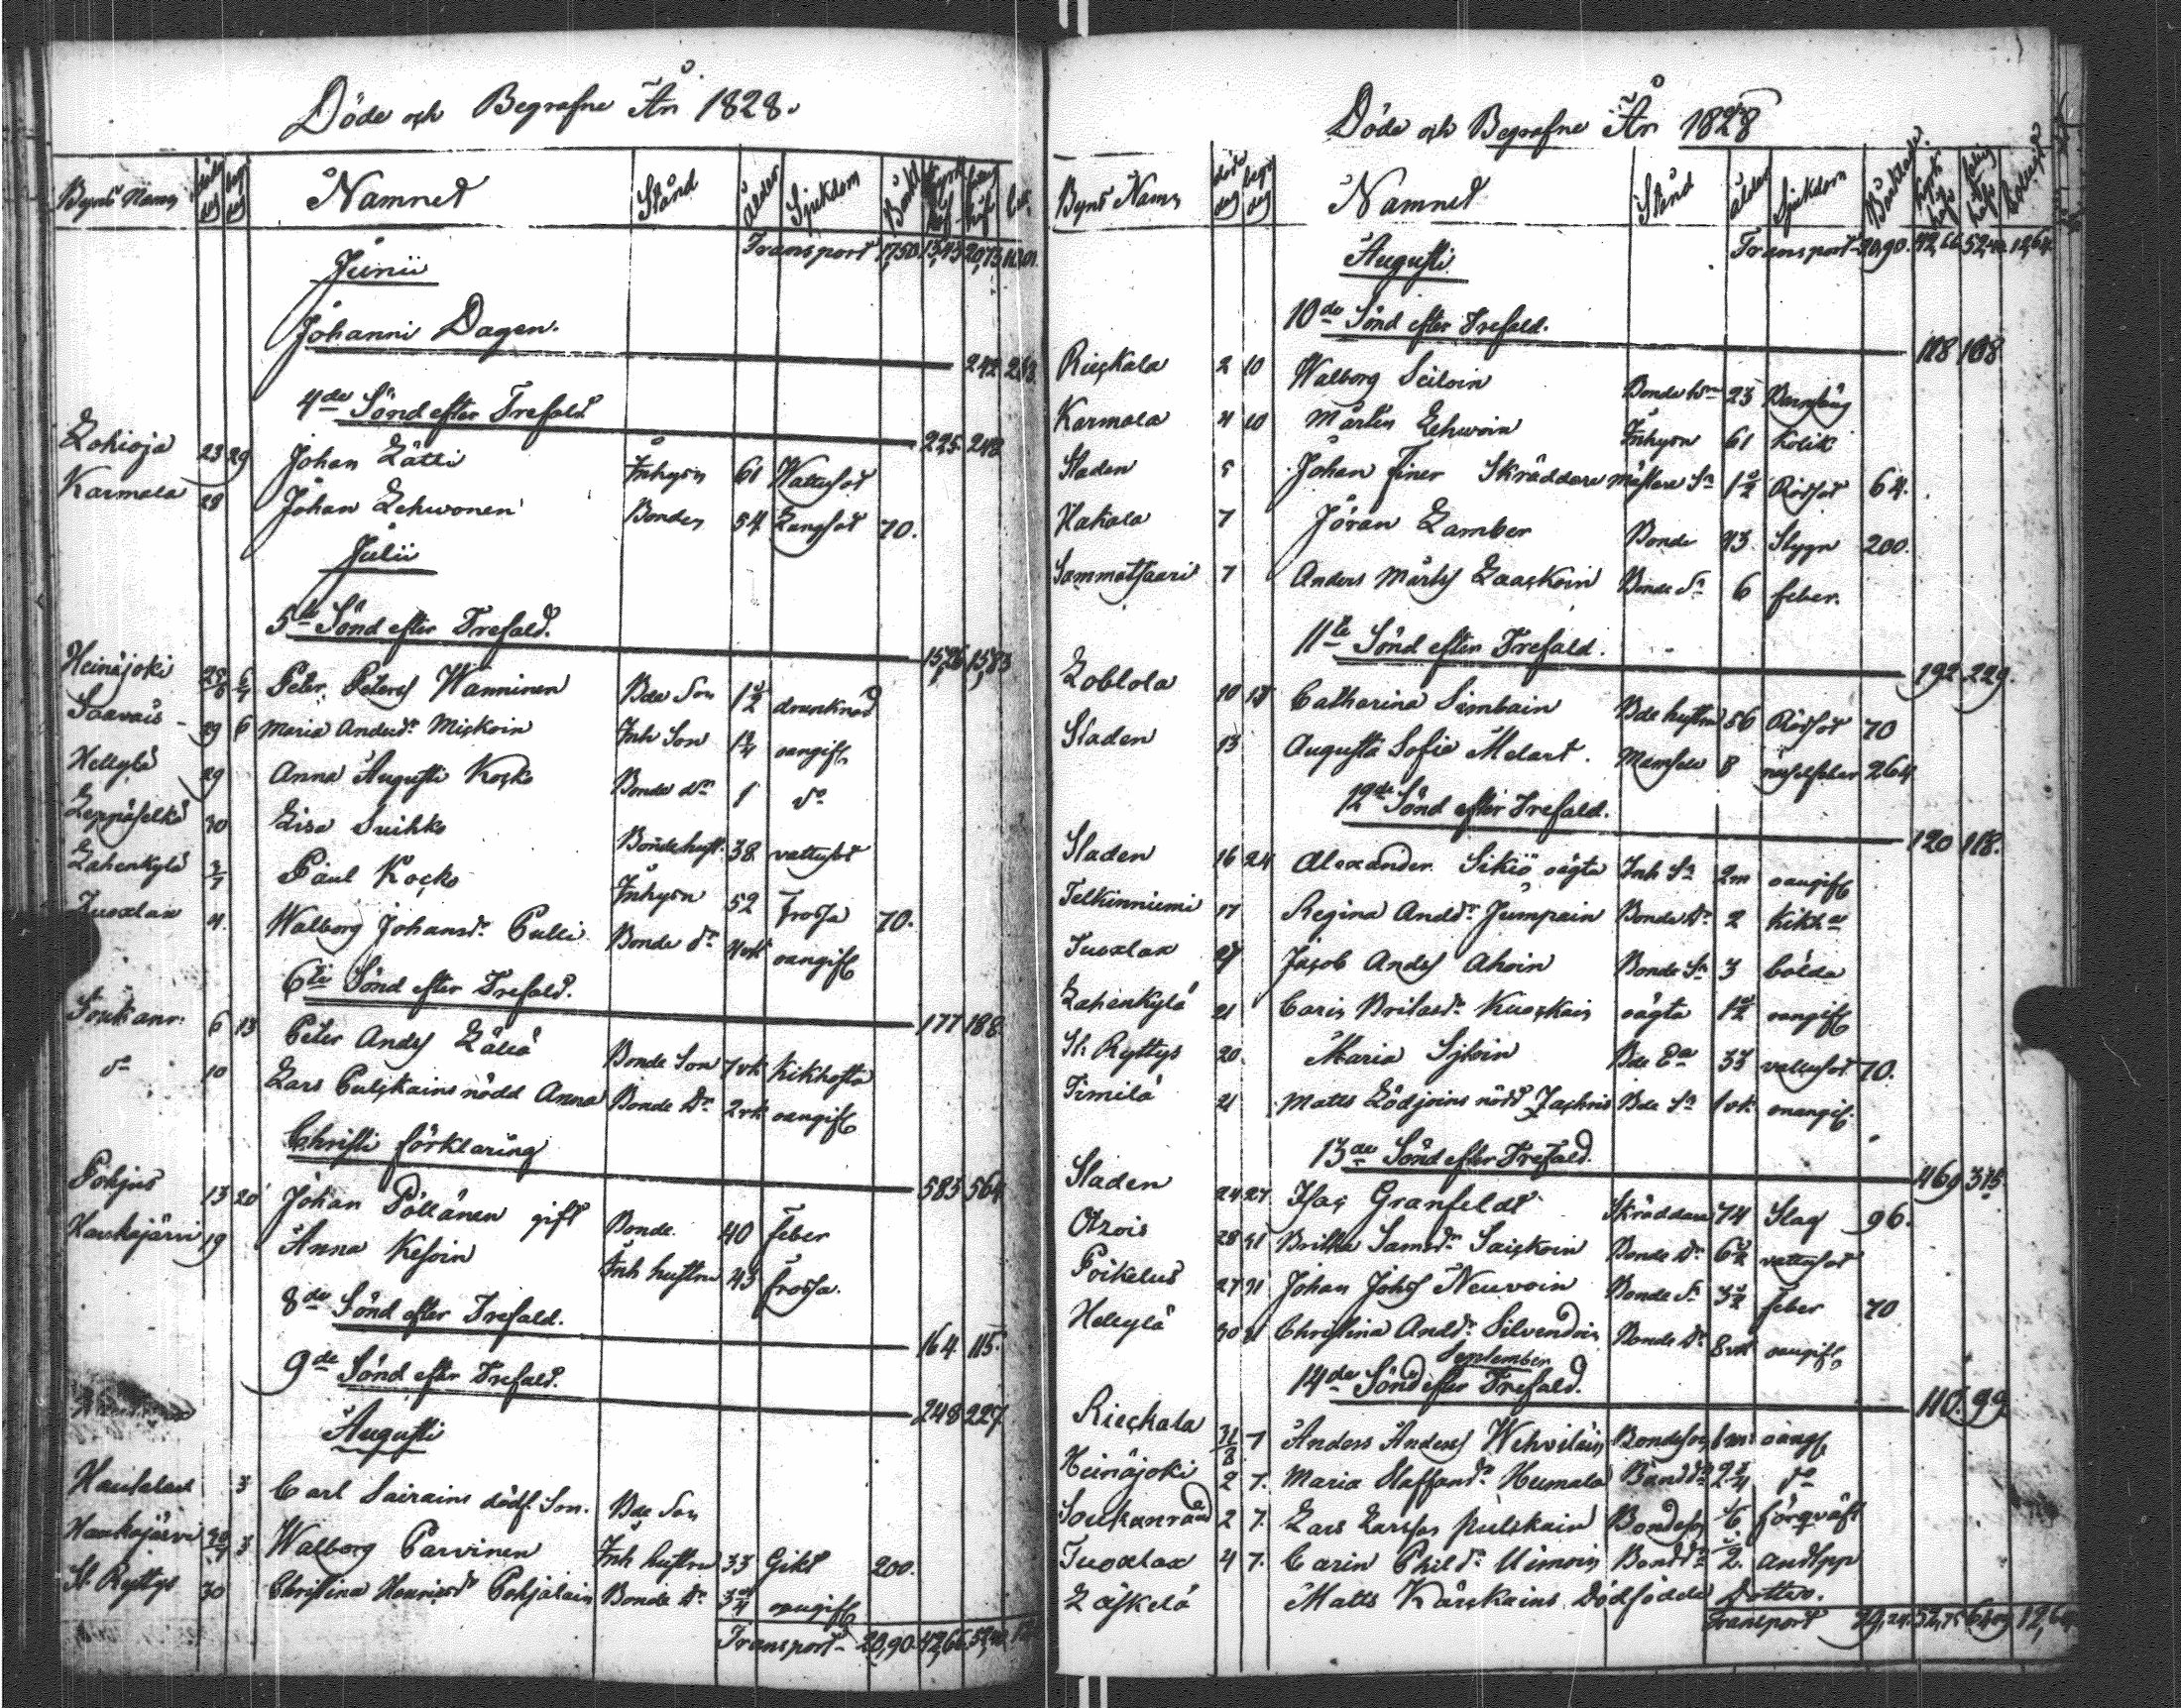 Döde och Begrafne År 1828.
Byns Namn död dag begr dag Namnet Stånd Ålder Sjukdom
Transport 17,50. 13,43 20,73
Junii
Johanni Dagen.
242 253.
4de Sönd efter Trefald
225 248
Lohioja 23 29 Johan Lätti Inhysn 61 Wattusot
Karmala 28 Johan Lehwonen Bonden 54 Lungsot 70.
Julii
5te Sönd efter Trefald.
15,26 15,83
Heinäjoki 28/6 6/7 Peter Peters Wänninen Bde Son 1 1/2 drunknad
29 6 Maria Andersdr Miskoin Inh Son 1 3/4 oangift
Helylä 29 Anna Augusti Kosko Bonde dr 1 do
Leppäselkä 30 Lisa Suihko Bonde hust. 38 vattusot
Lahenkylä 2/7 Paul Kosko Inhysn 52 Frossa 70.
Tuoxlax 4. Walborg Johansdr Pulli Bonde dr 4 vk oangift
6te Sönd efter Trefald.
177 188.
6 13 Peter Anders Läliä Bonde Son 7 vk Kikhosta
do 10 Lars Pulskains nödd Anna Bonde Dr 2 vk oangift
Christi förklaring
583 564
Pohjus 13 20 Johan Pöllänen gift Bonde. 40 Feber
Haukajärvi 19 Anna Kesoin Inh hustru 43 Frossa.
8de Sönd efter Trefald.
164 115.
9de Sönd efter Trefald.
248 227
Augusti
3 Carl Sairains dödf. Son. Bde Son
Haukajärvi 30/7 3 Walborg Parvinen Inh hustru 33 Gikt 200.
St. Ryttys 30 Christina Henricsdr Pohjalain Bonde Dr 3 3/4 oangift
Transport 20,90. 42,66. 52,40.
Döde och Begrafne År 1828
Byns Namn död dag begr dag Namnet Stånd ålder Sjukdom
Transport 20,90. 42,66. 52,40. 12,64.
Augusti
10de Sönd efter Trefald.
118 108
Rieskala 2 10 Walborg Seiloin Bonde 23 Barnsäng
Karmala 4 10 Mårten Lehwoin Inhysn 61 Kolik
Staden 5 Johan Finer Skräddare mästare Sn 1 1/2 Rödsot 64.
Hakala 7 Jöran Lamber Bonde 43 Stygn 200.
Sammatsaari 7 Anders Mårts Laaskoin Bonde Sn 6 feber.
11te Sönd efter Trefald.
192 229.
Loblola 10 17 Catharina Simbain Bde hustru 56 Rödsot 70
Staden 13 Augusta Sofia Melart. Mamsell 8 264
12de Sönd efter Trefald.
120 118.
Staden 16 24 Alexander Sikiö oägta Inh Sn 2m oangift
Telkinniemi 17 Regina Anddr Jumpain Bonde Dr 2 Kikh
Tuoxlax 27 Jacob Anders Ahoin Bonde Sn 3 bölda
Lahenkylä 21 Carin Britasdr Kuoskain oägta 1 1/2 oangift
St. Ryttys 20. Maria Siloin Bde Ea 33 vattusot 70.
Tirnilä 21 Matts Lödjoins nödd Zachris Bde Sn 1 vk oangif.
13de Sönd efter Trefald.
469 375
Staden 24 27 Isac Granfeldt Skräddare 74 Slag 96.
Otsois 28 31 Britha Samsdr Saiskoin Bonde Dr 6 1/2 vattusot
Poikelus 27 31 Johan Johs Neuvoin Bonde Sn 3 1/2 Feber 70
Helylä 30 31 Christina Anddr Silvendoin Bonde Dr 8 vk oangift
September
14de Sönd efter Trefald.
110. 99
Rieskala 31/8 7 Anders Anders Wehviläin Bondeson 6 m: oangf
Heinäjoki 2 7. Maria Staffansdr Humala Bonddr 2 3/4 do
Soukanrand 2 7. Lars Larsson Pulskain Bondeson 1/6 förqväft
Tuoxlax 4 7. Carin Phildr Uimoin Bonddr 2. andtpp
Läskelä Matts Kärskains Dödfödda Dotter.
Transport